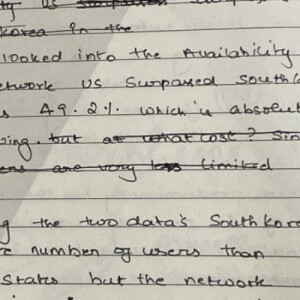 ty is surpassed
Korea in the
looked into the Availability
etwork US Surpassed South
s 49.2% which is absolut
ing. but at what cost? Sin
ers are very less limited
g the two data's South Kore
e number of users than
States but the network